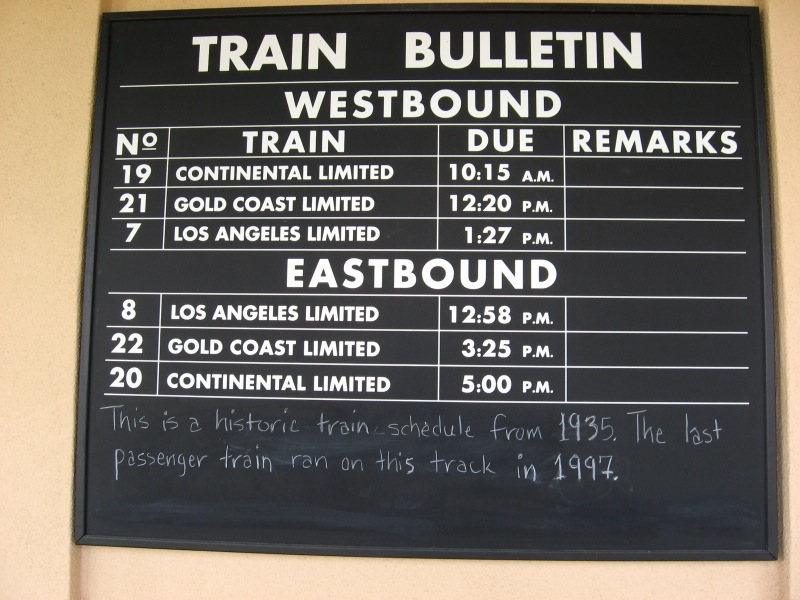 TRAIN BULLETIN
WESTBOUND
Nº TRAIN DUE REMARKS
19 CONTINENTAL LIMITED 10:15 A.M.
21 GOLD COAST LIMITED 12:20 P.M.
7 LOS ANGELES LIMITED 1:27 P.M.
EASTBOUND
8 LOS ANGELES LIMITED 12:58 P.M.
22 GOLD COAST LIMITED 3:25 P.M.
20 CONTINENTAL LIMITED 5:00 P.M.
This is a historic train schedule from 1935. The last
passenger train ran on this track in 1997.